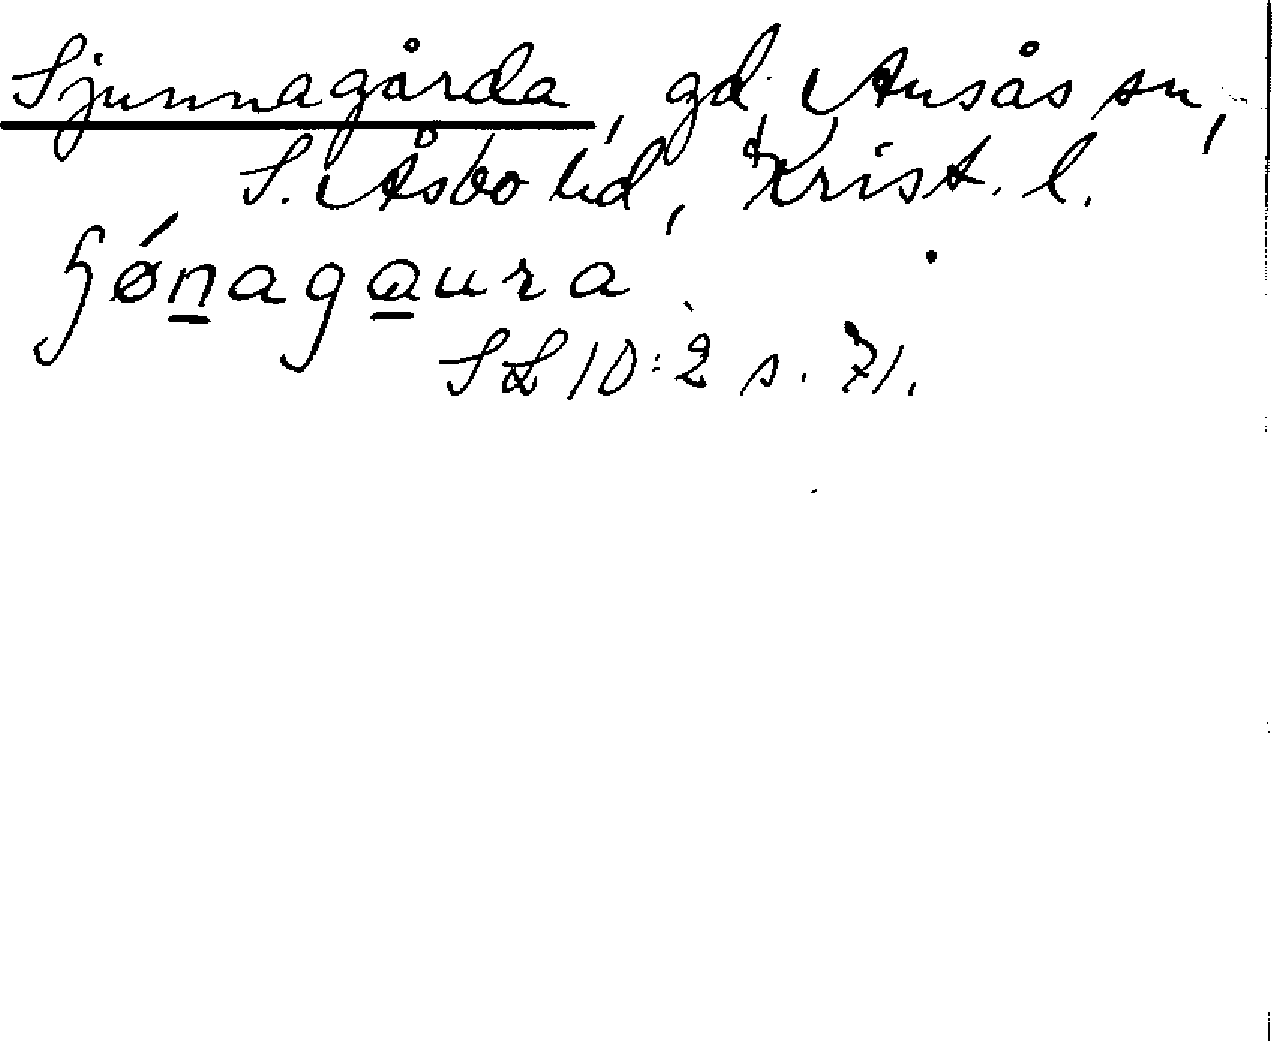 Sjunnagårda, gd, Ausås sn,
S. Åsbo hd, Krist. l.
ɧǿn̲aga̲ura
SL 10:2 s. 71.